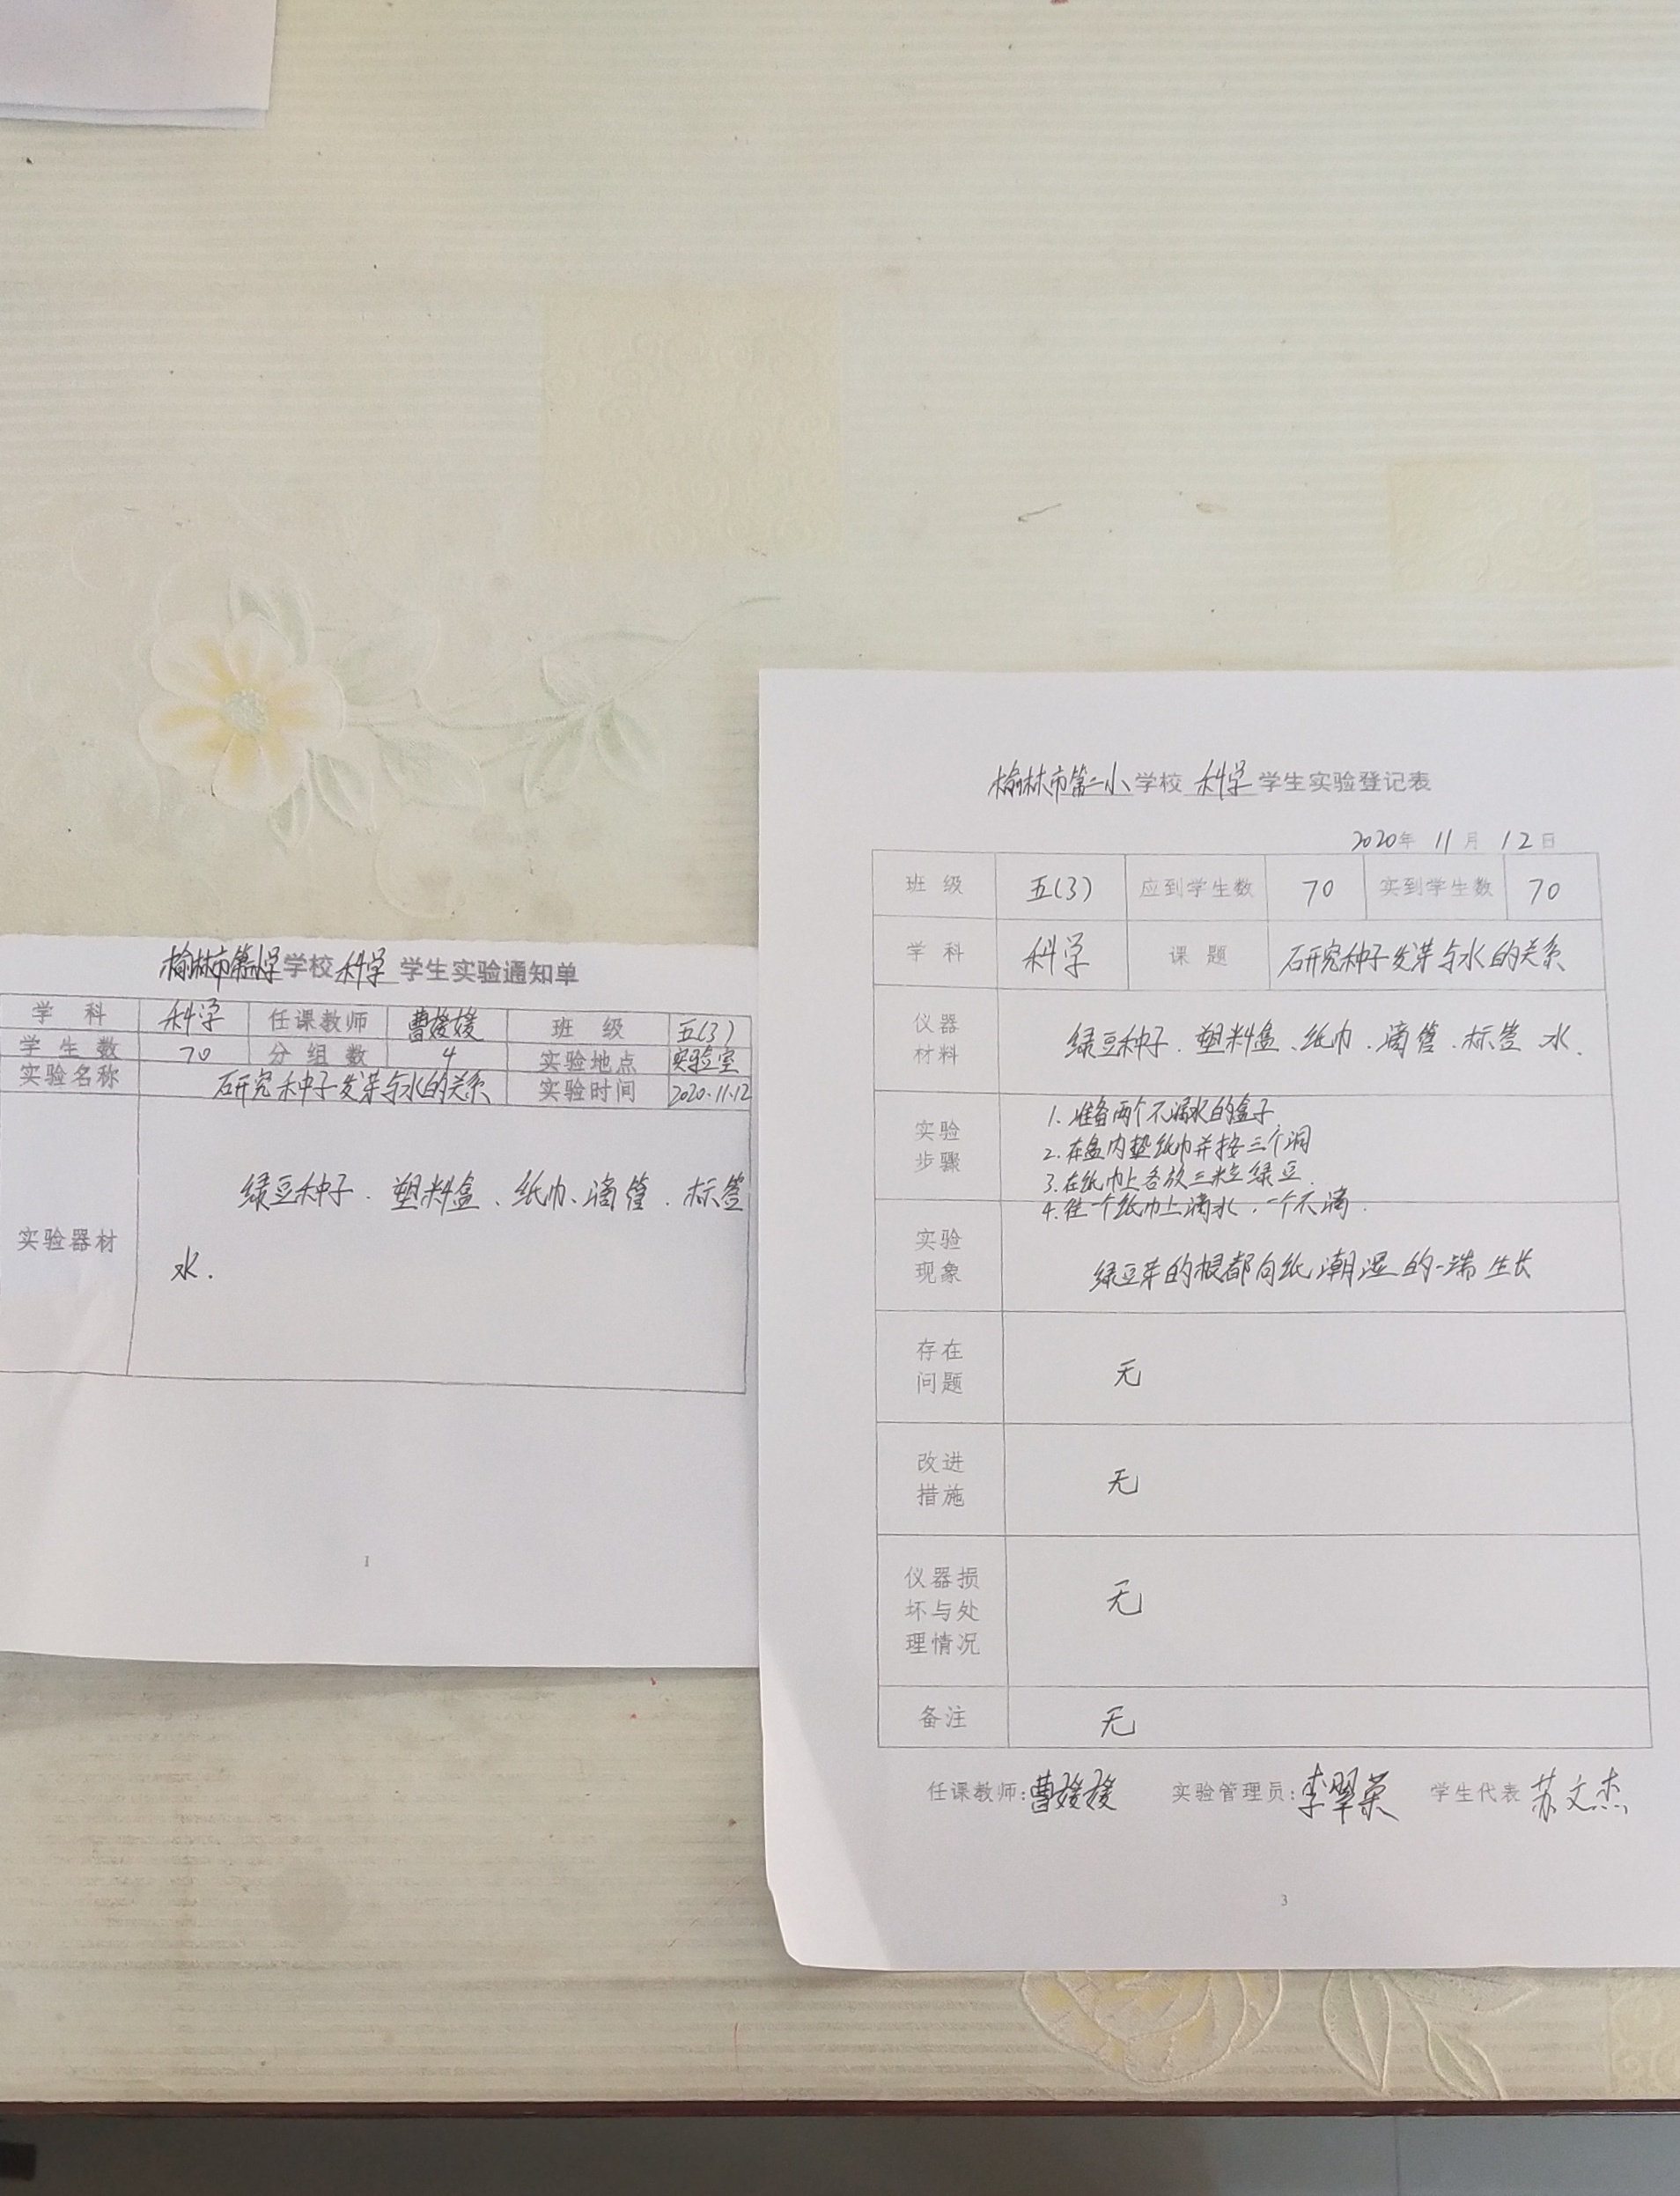 榆林市第二小学学校 科学 学生实验通知单
学科 科学 任课教师 曹媛媛 班级 五(3)
学生数 70 分组数 4 实验地点 实验室
实验名称 研究种子发芽与水的关系 实验时间 2020.11.12
实验器材
绿豆种子、塑料盒、纸巾、滴管、标签
水.
1
榆林市第二小学校 科学 学生实验登记表
2020年 11月 12日
班级 五(3) 应到学生数 70 实到学生数 70
学科 科学 课题 研究种子发芽与水的关系
仪器
材料
绿豆种子、塑料盒、纸巾、滴管、标签 水.
实验
步骤
1. 准备两个不漏水的盒子
2. 在盒内垫纸巾并按三个洞
3. 在纸巾上各放三粒绿豆.
4. 往一个纸巾上滴水,一个不滴.
实验
现象
绿豆芽的根都向纸潮湿的一端生长
存在
问题
无
改进
措施
无
仪器损
坏与处
理情况
无
备注 无
任课教师:曹媛媛 实验管理员:李翠荣 学生代表 苏文杰
3